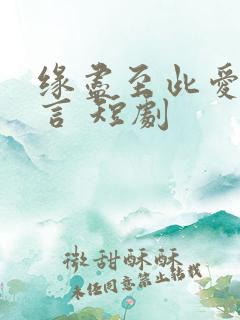 缘盡至此愛
言 短劇
微甜酥酥
未经同意禁止转载